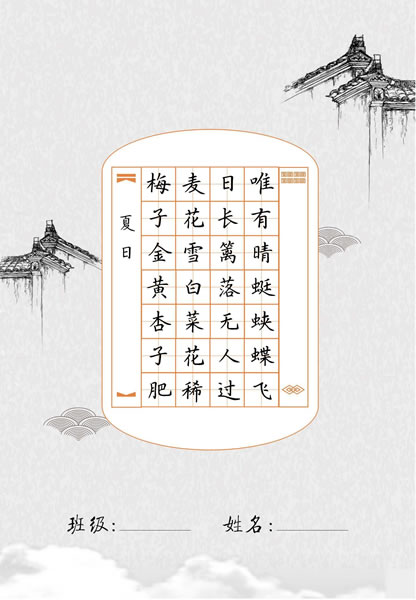 夏日
梅子金黄杏子肥
麦花雪白菜花稀
日长篱落无人过
唯有晴蜓蛱蝶飞
班级:
姓名: